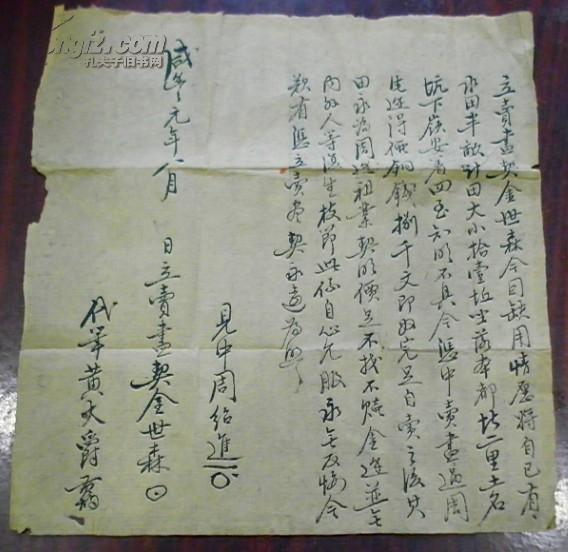 立賣盡契金世森今因缺用情愿將自己有
水田半畝計田大小拾壹坵坐落本都坊二里土名
坑下嶺安着四至不明不具今憑中賣盡過周
進得價銅錢捌千文即收完足自賣之後其
田永為周邊祖業契明價足不找不贖金邊並無
內外人等滋生枝節此係自心允服永無反悔今
欲有憑立賣盡契永遠為照
見中周紹進
咸豐元年八月 日立賣盡契金世森
代筆黃大爵
kongfz.com
孔夫子旧书网